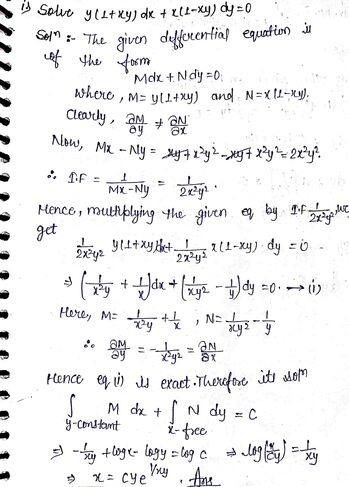 i) Solve y(1+xy)dx + x(1-xy)dy=0
Solⁿ :- The given differential equation is
of the form
Mdx + Ndy=0
where, M= y(1+xy) and N=x(1-xy).
Clearly, ∂M/∂y ≠ ∂N/∂x
Now, Mx - Ny = xy + x²y² - xy + x²y² = 2x²y².
∴ I.F = 1/(Mx-Ny) = 1/(2x²y²).
Hence, multiplying the given eq by I.F 1/(2x²y²), we
get
1/(2x²y²) y(1+xy)dx + 1/(2x²y²) x(1-xy) dy = 0
⇒ (1/(x²y) + 1/x)dx + (1/(xy²) - 1/y)dy = 0. → (i)
Here, M= 1/(x²y) + 1/x , N= 1/(xy²) - 1/y
∴ ∂M/∂y = -1/(x²y²) = ∂N/∂x
Hence eq (i) is exact. Therefore its solⁿ
∫ M dx + ∫ N dy = C
y-constant x-free
⇒ -1/xy + logx - logy = log c ⇒ log(x/cy) = 1/xy
⇒ x = cye^(1/xy) . Ans